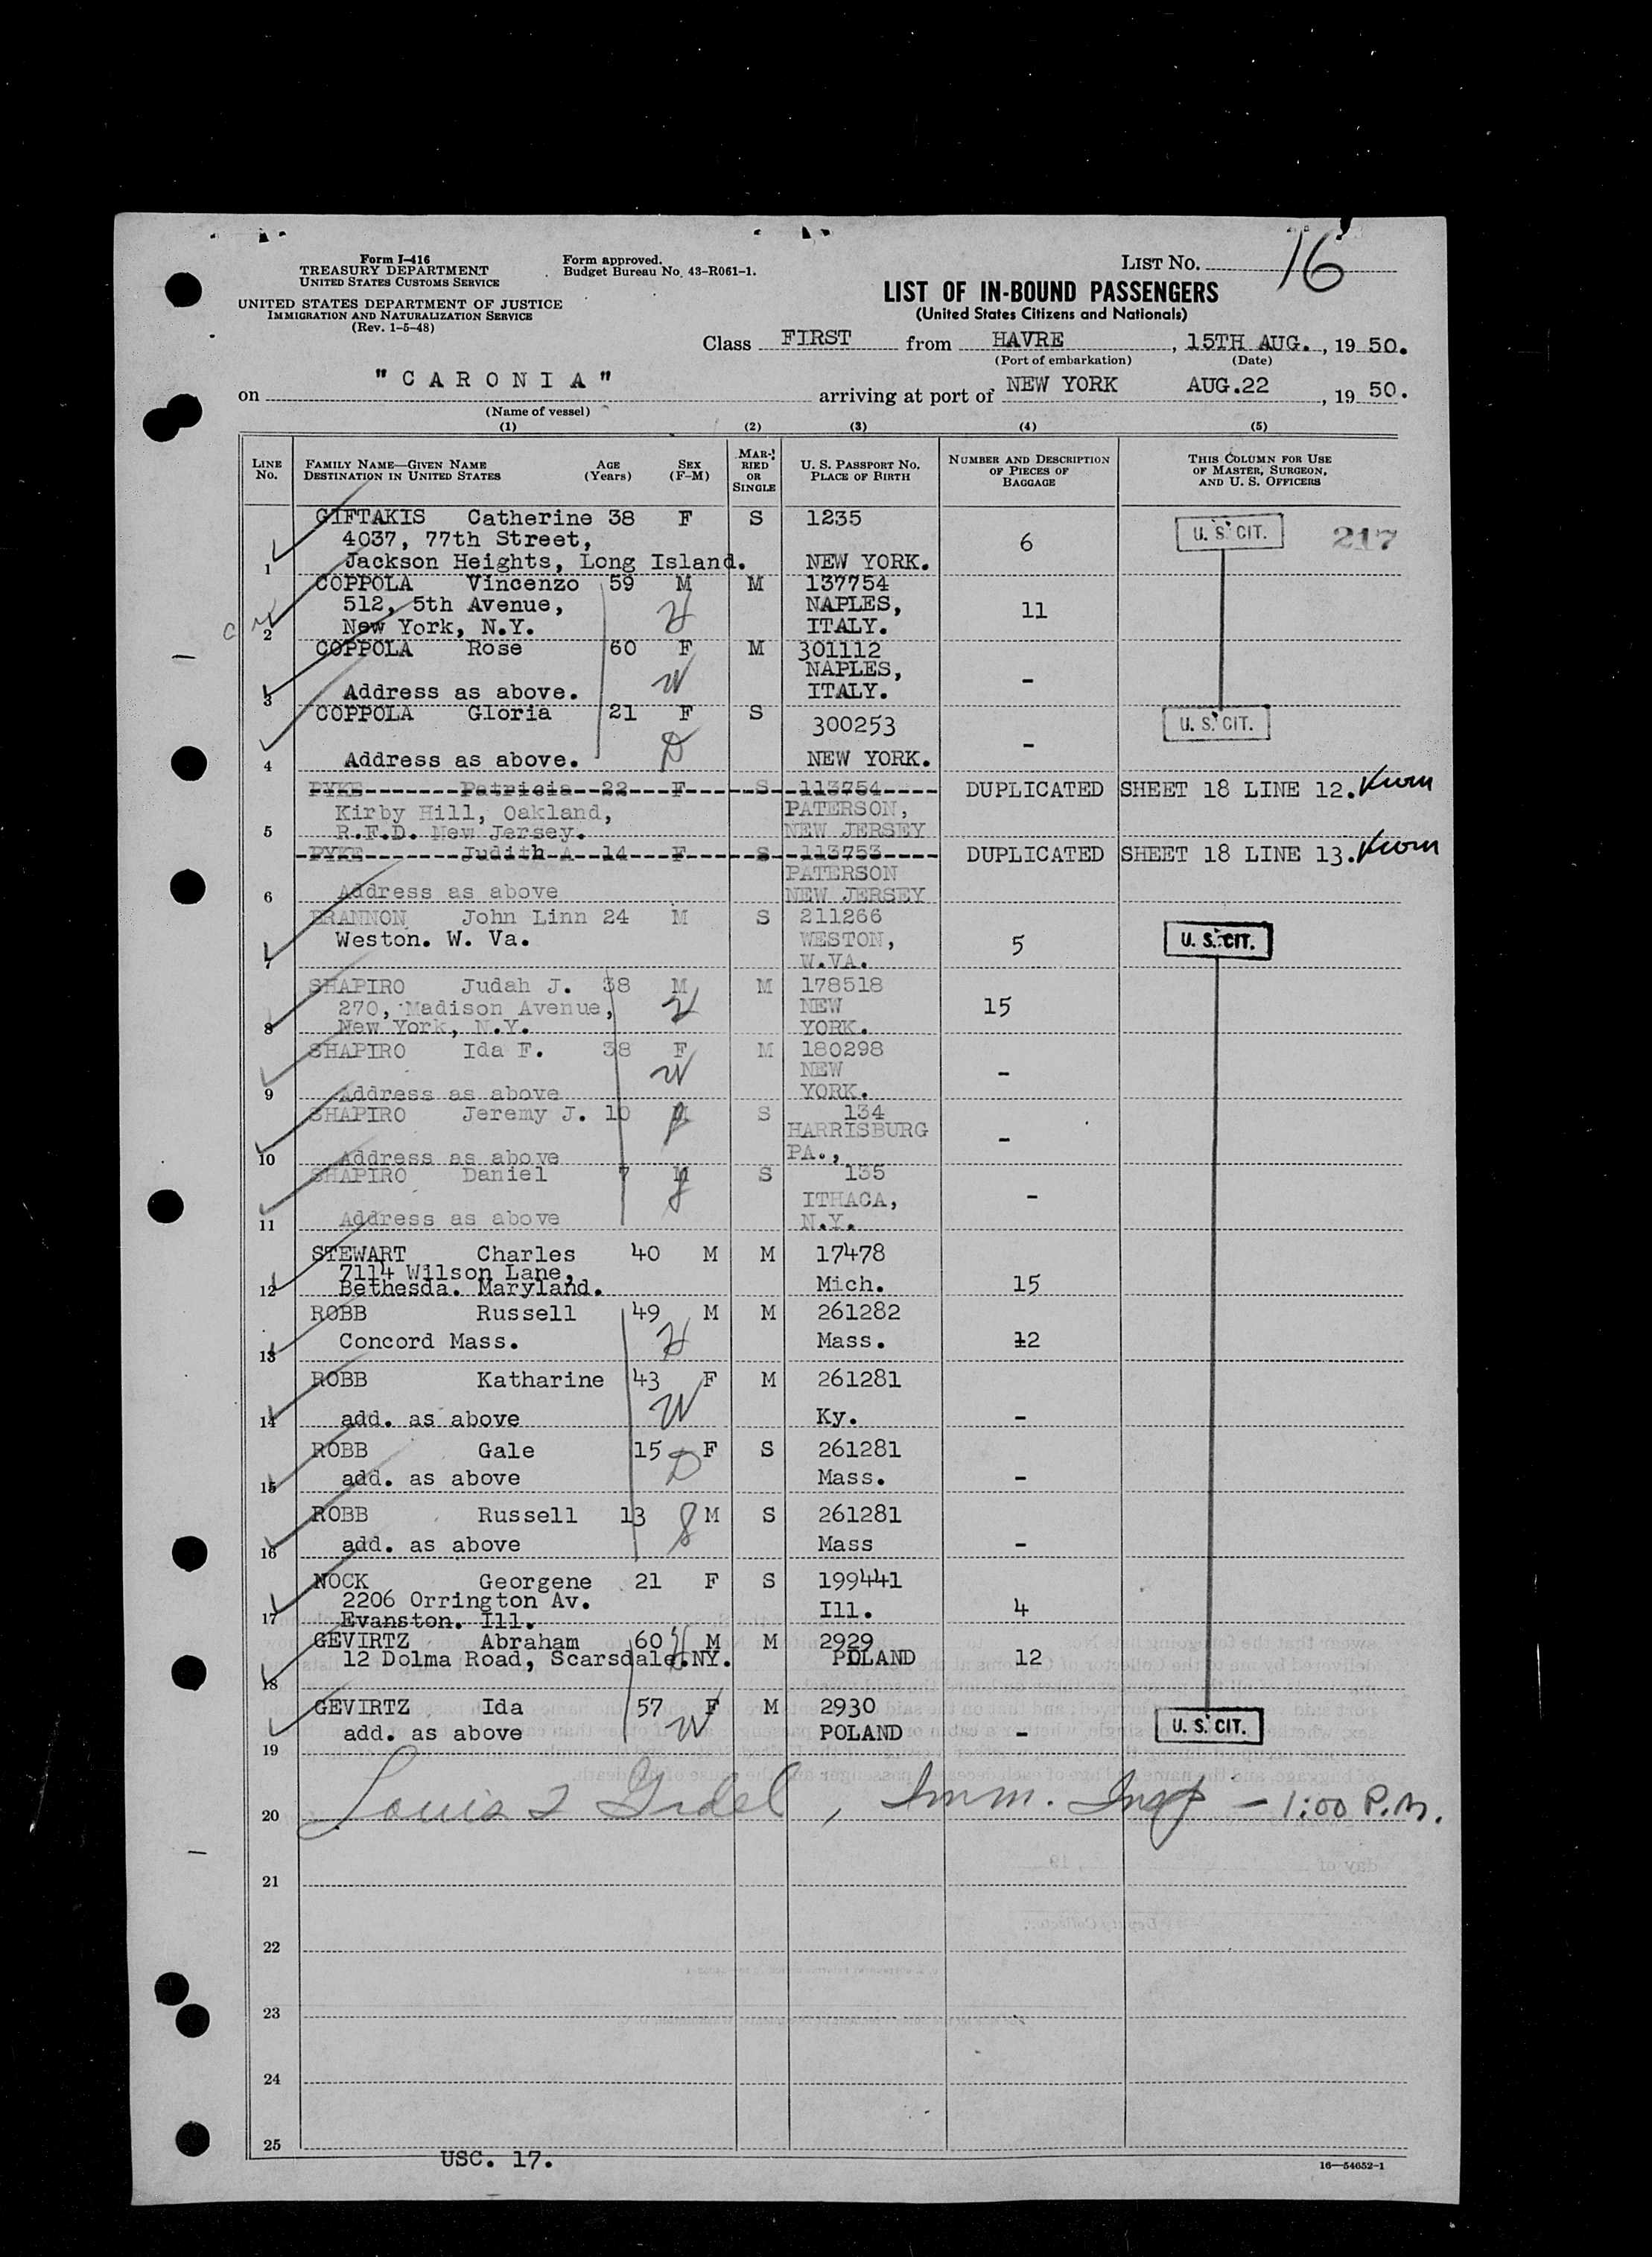 Form I-416
TREASURY DEPARTMENT
UNITED STATES CUSTOMS SERVICE
UNITED STATES DEPARTMENT OF JUSTICE
IMMIGRATION AND NATURALIZATION SERVICE
(Rev. 1-5-48)
Form approved.
Budget Bureau No. 43-R061-1.
LIST NO. 16
LIST OF IN-BOUND PASSENGERS
(United States Citizens and Nationals)
Class FIRST from HAVRE, 15TH AUG., 19 50.
(Port of embarkation) (Date)
on "CARONIA" arriving at port of NEW YORK AUG.22, 19 50.
(Name of vessel)
(1) (2) (3) (4) (5)
LINE NO.
FAMILY NAME—GIVEN NAME
DESTINATION IN UNITED STATES
AGE (Years)
SEX (F-M)
MARRIED OR SINGLE
U. S. PASSPORT NO.
PLACE OF BIRTH
NUMBER AND DESCRIPTION OF PIECES OF BAGGAGE
THIS COLUMN FOR USE OF MASTER, SURGEON, AND U. S. OFFICERS
GIFTAKIS Catherine 38 F S 1235 U. S. CIT. 217
4037, 77th Street, 6
1 Jackson Heights, Long Island. NEW YORK.
COPPOLA Vincenzo 59 M M 137754
512, 5th Avenue, H NAPLES, 11
C 2 New York, N.Y. ITALY.
COPPOLA Rose 60 F M 301112
W NAPLES, -
3 Address as above. ITALY.
COPPOLA Gloria 21 F S 300253 U. S. CIT.
D -
4 Address as above. NEW YORK.
PYKE Patricia 22 F S 113754 DUPLICATED SHEET 18 LINE 12.
Kirby Hill, Oakland, PATERSON,
5 R.F.D. New Jersey. NEW JERSEY
PYKE Judith A 14 F S 113753 DUPLICATED SHEET 18 LINE 13.
PATERSON
6 Address as above NEW JERSEY
BRANNON John Linn 24 M S 211266
Weston. W. Va. WESTON, 5 U. S. CIT.
7 W.VA.
SHAPIRO Judah J. 38 M M 178518
270, Madison Avenue, H NEW 15
8 New York, N.Y. YORK.
SHAPIRO Ida F. 38 F M 180298
W NEW -
9 Address as above YORK.
SHAPIRO Jeremy J. 10 M S 134
HARRISBURG -
10 Address as above PA.,
SHAPIRO Daniel 7 M S 135
ITHACA, -
11 Address as above N.Y.
STEWART Charles 40 M M 17478
7114 Wilson Lane,
12 Bethesda. Maryland. Mich. 15
ROBB Russell 49 M M 261282
13 Concord Mass. H Mass. 12
ROBB Katharine 43 F M 261281
14 add. as above W Ky. -
ROBB Gale 15 F S 261281
15 add. as above D Mass. -
ROBB Russell 13 M S 261281
16 add. as above S Mass -
NOCK Georgene 21 F S 199441
2206 Orrington Av. Ill. 4
17 Evanston. Ill.
GEVIRTZ Abraham 60 H M M 2929
12 Dolma Road, Scarsdale.NY. POLAND 12
18
GEVIRTZ Ida 57 F M 2930
add. as above W POLAND - U. S. CIT.
19
20 Louis , Imm. Insp - 1:00 P.M.
21
22
23
24
25
USC. 17.
16—54652-1